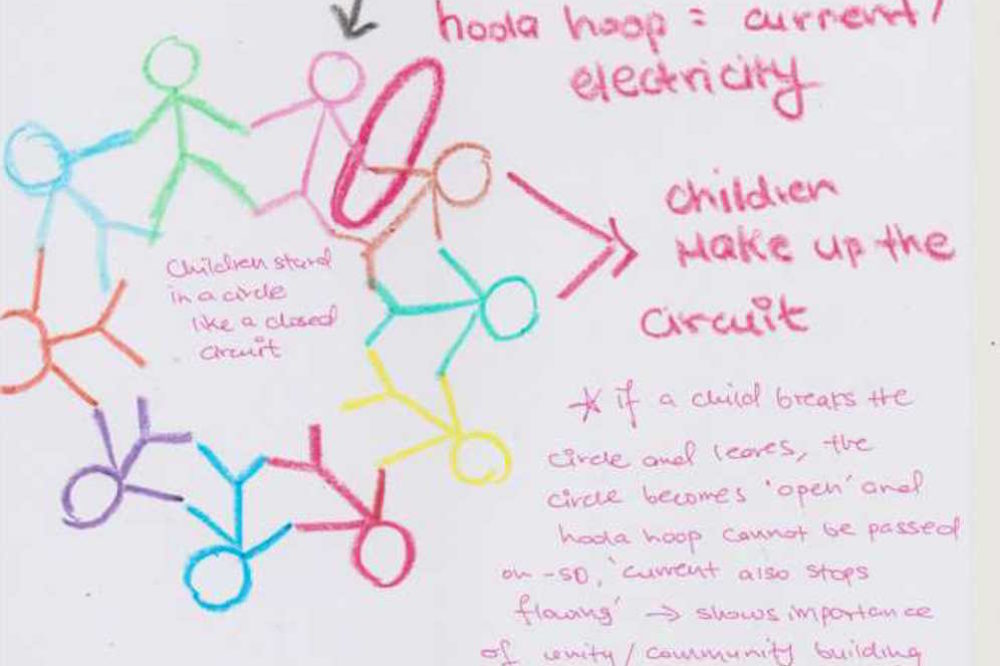 hoola hoop = current/
electricity
children
Make up the
circuit
Children stand
in a circle
like a closed
circuit
* if a child breaks the
circle and leaves, the
circle becomes 'open' and
hoola hoop cannot be passed
on - so, 'current also stops
flowing' → shows importance
of unity / community building